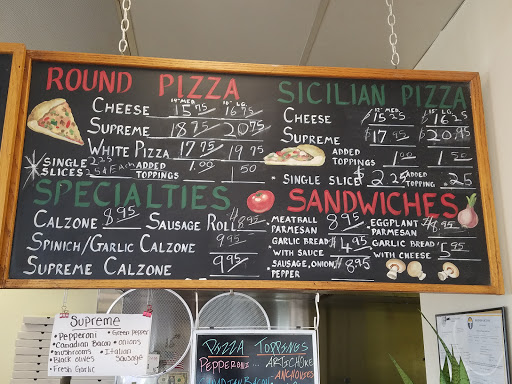 ROUND PIZZA
14" MED. 16" LG.
CHEESE 15.75 16.75
SUPREME 18.75 20.75
WHITE PIZZA 17.75 19.75
SINGLE SLICES 2.25
25¢ Each ADDED TOPPINGS 1.00 1.50
SICILIAN PIZZA
12" MED. 16" LG.
CHEESE $15.25 $16.25
SUPREME $17.95 $20.95
ADDED TOPPINGS 1.00 1.50
• SINGLE SLICE $2.25 ADDED TOPPING .25
SPECIALTIES
CALZONE 8.95 SAUSAGE ROLL $8.95
SPINICH/GARLIC CALZONE 9.95
SUPREME CALZONE 9.95
SANDWICHES
MEATBALL PARMESAN 8.95
EGGPLANT PARMESAN $8.95
GARLIC BREAD WITH SAUCE $4.95
GARLIC BREAD WITH CHEESE 5.95
SAUSAGE, ONION, PEPPER $8.95
Supreme
• Pepperoni • Green Pepper
• Canadian Bacon • onions
• mushrooms • Italian Sausage
• Black olives
• Fresh Garlic
PIZZA TOPPINGS
PEPPERONI... ARTICHOKE
CANADIAN BACON ANCHOVIES